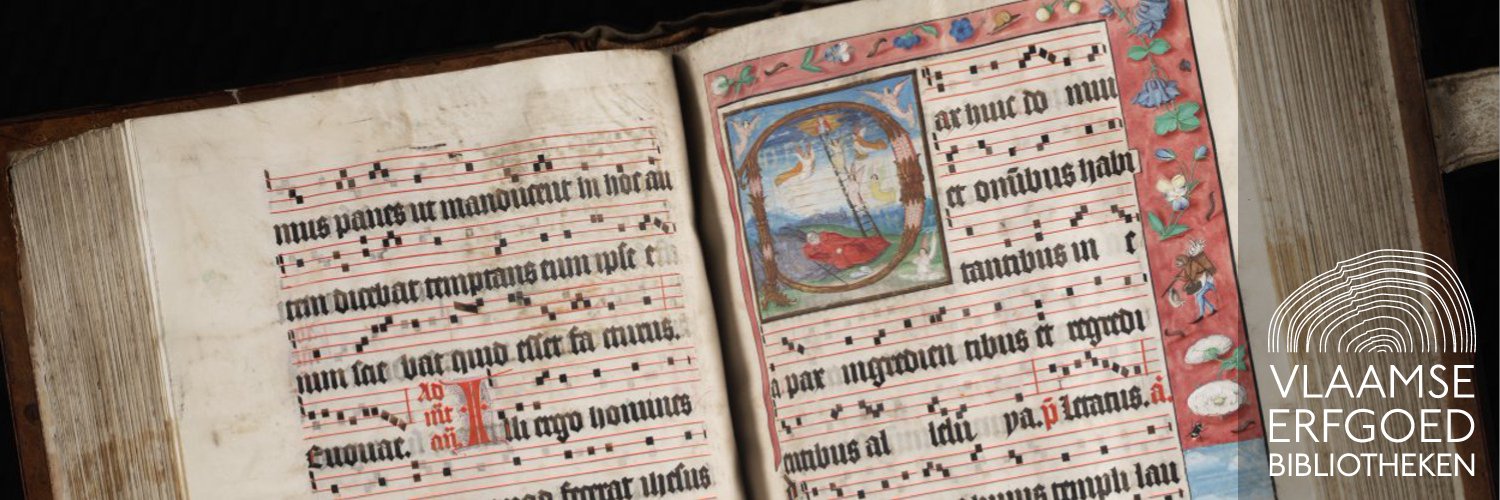 mus panes ut manducent in hoc au
tem dicebat temptans eum ipse e
nim scie bat quid esset fa cturus.
Euouae. Ad
Illi ergo homines
fecerat ihesus
ax huic do mui
et om̄ibus habi
tantibus in e
a pax ingredien tibus et egredi
entibus al lelu ya. p̄ Letatus. a᷃
templi lau
VLAAMSE
ERFGOED
BIBLIOTHEKEN